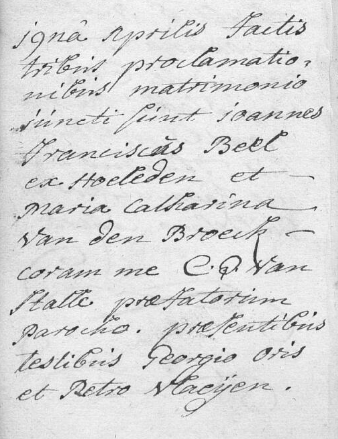 19nâ Aprilis factis
tribus proclamatio-
nibus matrimonio
juncti sunt joannes
franciscus Beel
ex Hoeleden et -
Maria Catharina
Van den Broeck -
coram me C. Q. Van
Stalle præstatorum
Parocho. præsentibus
testibus Georgio Oris
et Petro Vlaeÿen.